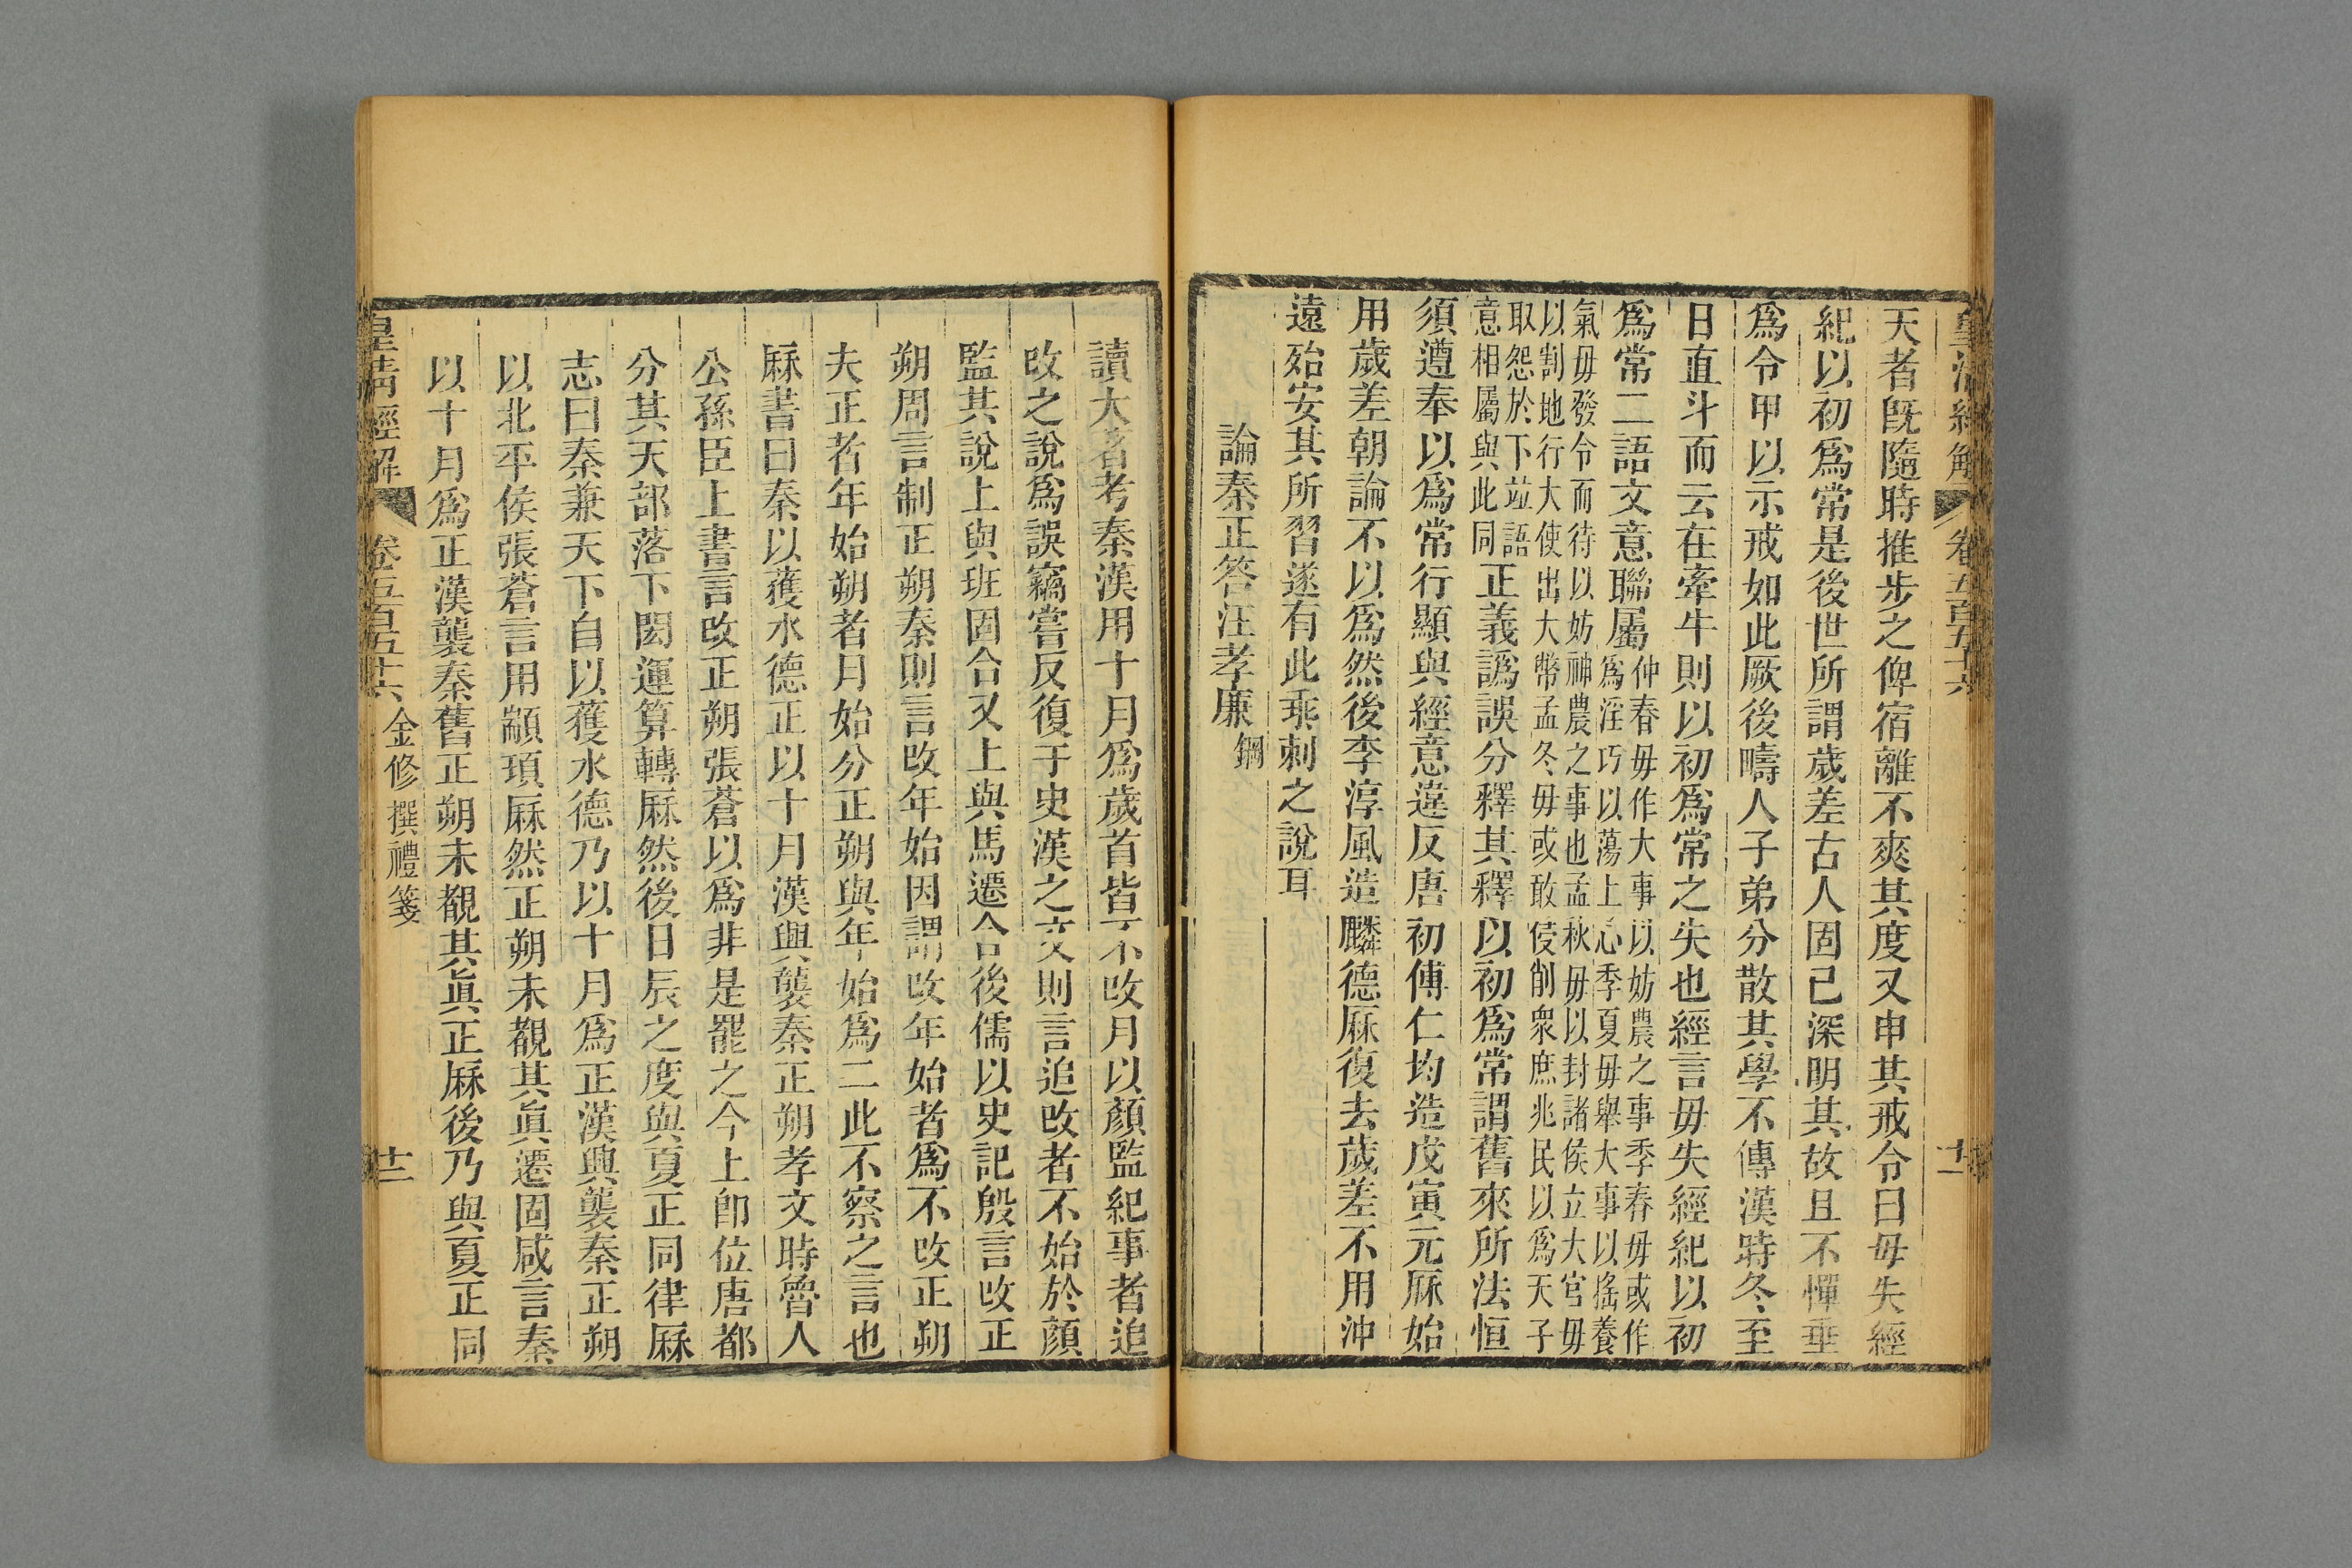 皇清經解
卷五百五十六
十一
天者旣隨時推步之俾宿離不爽其度又申其戒令曰毋失經
紀以初爲常是後世所謂歲差古人固已深明其故且不憚垂
爲令甲以示戒如此厥後疇人子弟分散其學不傳漢時冬至
日直斗而云在牽牛則以初爲常之失也經言毋失經紀以初
爲常二語文意聯屬
仲春毋作大事以妨農之事季春毋或作
爲淫巧以蕩上心季夏毋舉大事以搖養
氣毋發令而待以妨神農之事也孟秋毋以封諸侯立大官毋
以割地行大使出大幣孟冬毋或敢侵削衆庶兆民以爲天子
取怨於下竝語
意相屬與此同
正義譌誤分釋其釋以初爲常謂舊來所法恒
須遵奉以爲常行顯與經意違反唐初傅仁均造戊寅元厤始
用歲差朝論不以爲然後李淳風造麟德厤復去歲差不用沖
遠殆安其所習遂有此乖刺之說耳
論秦正答汪孝廉鋼
讀大著考秦漢用十月爲歲首皆不改月以顏監紀事者追
改之說爲誤竊嘗反復于史漢之文則言追改者不始於顏
監其說上與班固合又上與馬遷合後儒以史記殷言改正
朔周言制正朔秦則言改年始因謂改年始者爲不改正朔
夫正者年始朔者月始分正朔與年始爲二此不察之言也
厤書曰秦以獲水德正以十月漢興襲秦正朔孝文時魯人
公孫臣上書言改正朔張蒼以爲非是罷之今上卽位唐都
分其天部落下閎運算轉厤然後日辰之度與夏正同律厤
志曰秦兼天下自以獲水德乃以十月爲正漢興襲秦正朔
以北平侯張蒼言用顓頊厤然正朔未覩其眞遷固咸言秦
以十月爲正漢襲秦舊正朔未覩其眞正厤後乃與夏正同
皇清經解
卷五百五十六
金修撰禮箋
十二